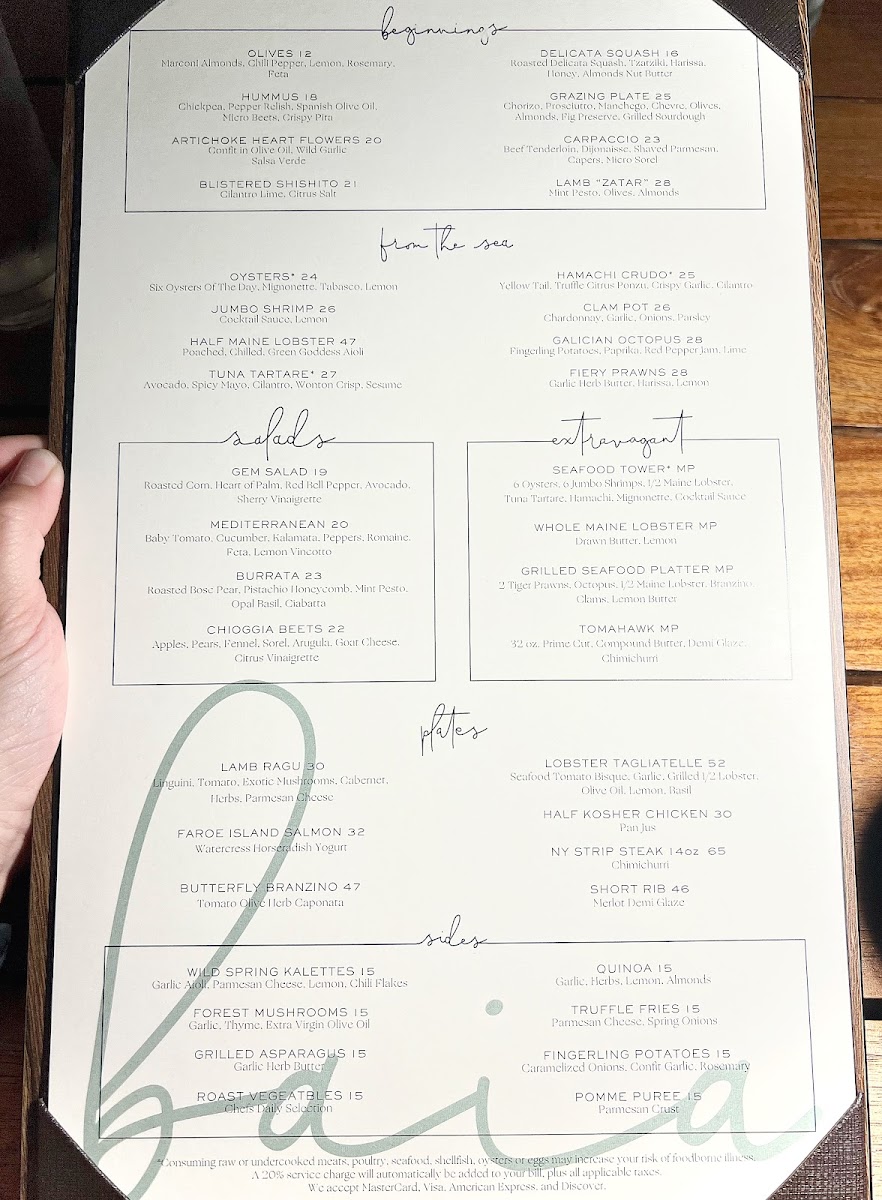 beginnings
OLIVES 12
Marconi Almonds, Chili Pepper, Lemon, Rosemary,
Feta
HUMMUS 18
Chickpea, Pepper Relish, Spanish Olive Oil,
Micro Beets, Crispy Pita
ARTICHOKE HEART FLOWERS 20
Confit in Olive Oil, Wild Garlic
Salsa Verde
BLISTERED SHISHITO 21
Cilantro Lime, Citrus Salt
DELICATA SQUASH 16
Roasted Delicata Squash, Tzatziki, Harissa,
Honey, Almonds Nut Butter
GRAZING PLATE 25
Chorizo, Prosciutto, Manchego, Chevre, Olives,
Almonds, Fig Preserve, Grilled Sourdough
CARPACCIO 23
Beef Tenderloin, Dijonaisse, Shaved Parmesan,
Capers, Micro Sorel
LAMB "ZATAR" 28
Mint Pesto, Olives, Almonds
from the sea
OYSTERS* 24
Six Oysters Of The Day, Mignonette, Tabasco, Lemon
JUMBO SHRIMP 26
Cocktail Sauce, Lemon
HALF MAINE LOBSTER 47
Poached, Chilled, Green Goddess Aioli
TUNA TARTARE* 27
Avocado, Spicy Mayo, Cilantro, Wonton Crisp, Sesame
HAMACHI CRUDO* 25
Yellow Tail, Truffle Citrus Ponzu, Crispy Garlic, Cilantro
CLAM POT 26
Chardonnay, Garlic, Onions, Parsley
GALICIAN OCTOPUS 28
Fingerling Potatoes, Paprika, Red Pepper Jam, Lime
FIERY PRAWNS 28
Garlic Herb Butter, Harissa, Lemon
salads
GEM SALAD 19
Roasted Corn, Heart of Palm, Red Bell Pepper, Avocado,
Sherry Vinaigrette
MEDITERRANEAN 20
Baby Tomato, Cucumber, Kalamata, Peppers, Romaine,
Feta, Lemon Vincotto
BURRATA 23
Roasted Bosc Pear, Pistachio Honeycomb, Mint Pesto,
Opal Basil, Ciabatta
CHIOGGIA BEETS 22
Apples, Pears, Fennel, Sorel, Arugula, Goat Cheese,
Citrus Vinaigrette
extravagant
SEAFOOD TOWER* MP
6 Oysters, 6 Jumbo Shrimps, 1/2 Maine Lobster,
Tuna Tartare, Hamachi, Mignonette, Cocktail Sauce
WHOLE MAINE LOBSTER MP
Drawn Butter, Lemon
GRILLED SEAFOOD PLATTER MP
2 Tiger Prawns, Octopus, 1/2 Maine Lobster, Branzino,
Clams, Lemon Butter
TOMAHAWK MP
32 oz. Prime Cut, Compound Butter, Demi Glaze,
Chimichurri
plates
LAMB RAGU 30
Linguini, Tomato, Exotic Mushrooms, Cabernet,
Herbs, Parmesan Cheese
FAROE ISLAND SALMON 32
Watercress Horseradish Yogurt
BUTTERFLY BRANZINO 47
Tomato Olive Herb Caponata
LOBSTER TAGLIATELLE 52
Seafood Tomato Bisque, Garlic, Grilled 1/2 Lobster,
Olive Oil, Lemon, Basil
HALF KOSHER CHICKEN 30
Pan Jus
NY STRIP STEAK 14oz 65
Chimichurri
SHORT RIB 46
Merlot Demi Glaze
sides
WILD SPRING KALETTES 15
Garlic Aioli, Parmesan Cheese, Lemon, Chili Flakes
FOREST MUSHROOMS 15
Garlic, Thyme, Extra Virgin Olive Oil
GRILLED ASPARAGUS 15
Garlic Herb Butter
ROAST VEGEATBLES 15
Chefs Daily Selection
QUINOA 15
Garlic, Herbs, Lemon, Almonds
TRUFFLE FRIES 15
Parmesan Cheese, Spring Onions
FINGERLING POTATOES 15
Caramelized Onions, Confit Garlic, Rosemary
POMME PUREE 15
Parmesan Crust
baia
*Consuming raw or undercooked meats, poultry, seafood, shellfish, oysters or eggs may increase your risk of foodborne illness.
A 20% service charge will automatically be added to your bill, plus all applicable taxes.
We accept MasterCard, Visa, American Express, and Discover.